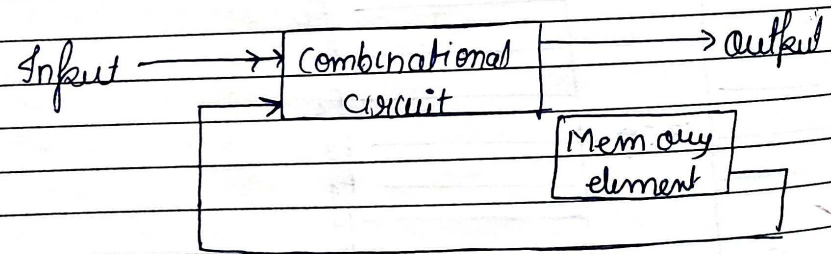 Input
combinational
circuit
output
Memory
element